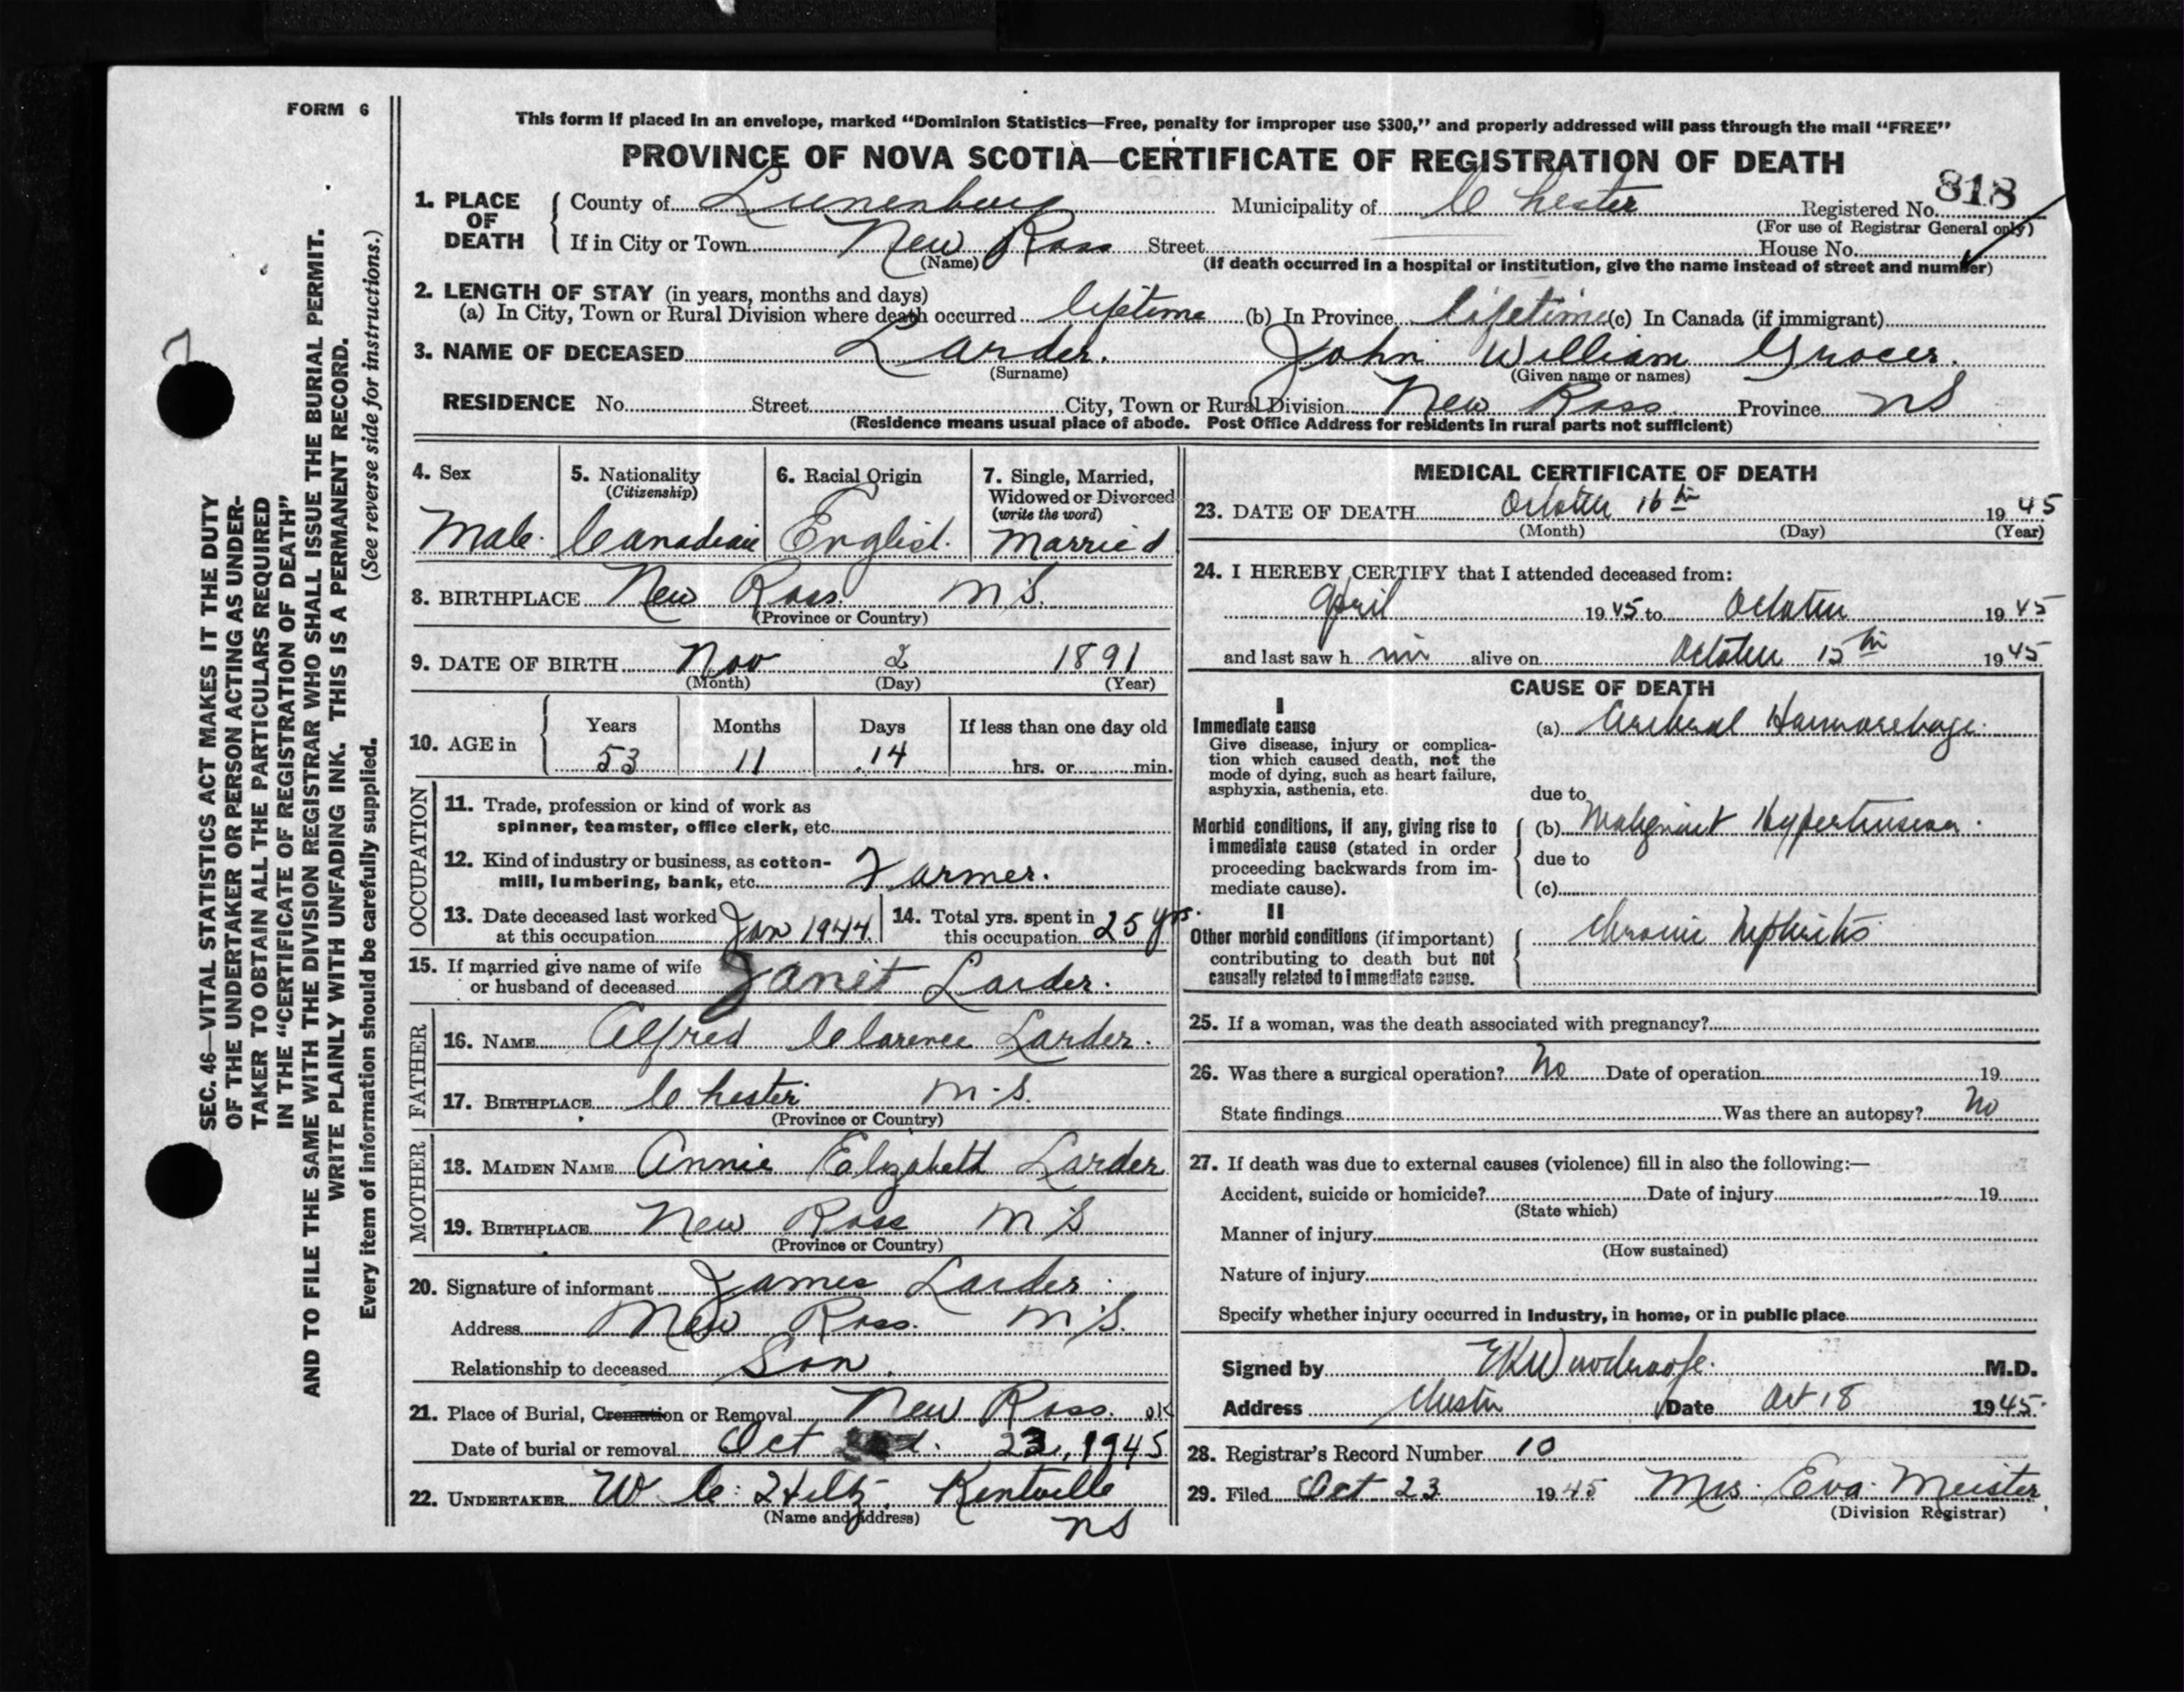 FORM 6
This form if placed in an envelope, marked “Dominion Statistics—Free, penalty for improper use $300,” and properly addressed will pass through the mail “FREE”
PROVINCE OF NOVA SCOTIA—CERTIFICATE OF REGISTRATION OF DEATH
818
1. PLACE OF DEATH { County of Lunenburg Municipality of Chester Registered No.
(For use of Registrar General only)
If in City or Town New Ross Street House No.
(Name) (If death occurred in a hospital or institution, give the name instead of street and number)
2. LENGTH OF STAY (in years, months and days)
(a) In City, Town or Rural Division where death occurred lifetime (b) In Province lifetime (c) In Canada (if immigrant)
3. NAME OF DECEASED Larder. John William Grocer.
(Surname) (Given name or names)
RESIDENCE No. Street City, Town or Rural Division New Ross Province NS
(Residence means usual place of abode. Post Office Address for residents in rural parts not sufficient)
4. Sex
Male.
5. Nationality
(Citizenship)
Canadian
6. Racial Origin
English.
7. Single, Married,
Widowed or Divorced
(write the word)
Married
8. BIRTHPLACE New Ross. N.S.
(Province or Country)
9. DATE OF BIRTH Nov 2 1891
(Month) (Day) (Year)
10. AGE in { Years Months Days If less than one day old
53 11 14 hrs. or min.
OCCUPATION
11. Trade, profession or kind of work as
spinner, teamster, office clerk, etc.
12. Kind of industry or business, as cotton-
mill, lumbering, bank, etc. Farmer.
13. Date deceased last worked
at this occupation Jan 1944
14. Total yrs. spent in
this occupation 25 yrs.
15. If married give name of wife
or husband of deceased Janet Larder.
FATHER
16. NAME Alfred Clarence Larder.
17. BIRTHPLACE Chester N.S.
(Province or Country)
MOTHER
18. MAIDEN NAME Annie Elizabeth Larder
19. BIRTHPLACE New Ross N S
(Province or Country)
20. Signature of informant James Larder
Address New Ross. N.S.
Relationship to deceased Son.
21. Place of Burial, Cremation or Removal New Ross. OK
Date of burial or removal Oct 23, 1945
22. UNDERTAKER W. C. Hiltz. Kentville
(Name and address) NS
MEDICAL CERTIFICATE OF DEATH
23. DATE OF DEATH October 16th 1945
(Month) (Day) (Year)
24. I HEREBY CERTIFY that I attended deceased from:
April 1945 to October 1945
and last saw him alive on October 15th 1945
CAUSE OF DEATH
I
Immediate cause (a) Cerebral Haemorrhage.
Give disease, injury or complica-
tion which caused death, not the
mode of dying, such as heart failure,
asphyxia, asthenia, etc.
due to
Morbid conditions, if any, giving rise to
immediate cause (stated in order
proceeding backwards from im-
mediate cause).
(b) Malignant Hypertension.
due to
(c)
II
Other morbid conditions (if important)
contributing to death but not
causally related to immediate cause.
Chronic Nephritis
25. If a woman, was the death associated with pregnancy?
26. Was there a surgical operation? No Date of operation 19
State findings Was there an autopsy? No
27. If death was due to external causes (violence) fill in also the following:—
Accident, suicide or homicide? Date of injury 19
(State which)
Manner of injury
(How sustained)
Nature of injury
Specify whether injury occurred in Industry, in home, or in public place
Signed by M.D.
Address Chester Date Oct 18 1945
28. Registrar’s Record Number 10
29. Filed Oct 23 1945 Mrs. Eva Meister
(Division Registrar)
SEC. 46—VITAL STATISTICS ACT MAKES IT THE DUTY
OF THE UNDERTAKER OR PERSON ACTING AS UNDER-
TAKER TO OBTAIN ALL THE PARTICULARS REQUIRED
IN THE “CERTIFICATE OF REGISTRATION OF DEATH”
AND TO FILE THE SAME WITH THE DIVISION REGISTRAR WHO SHALL ISSUE THE BURIAL PERMIT.
WRITE PLAINLY WITH UNFADING INK. THIS IS A PERMANENT RECORD.
Every item of information should be carefully supplied. (See reverse side for instructions.)